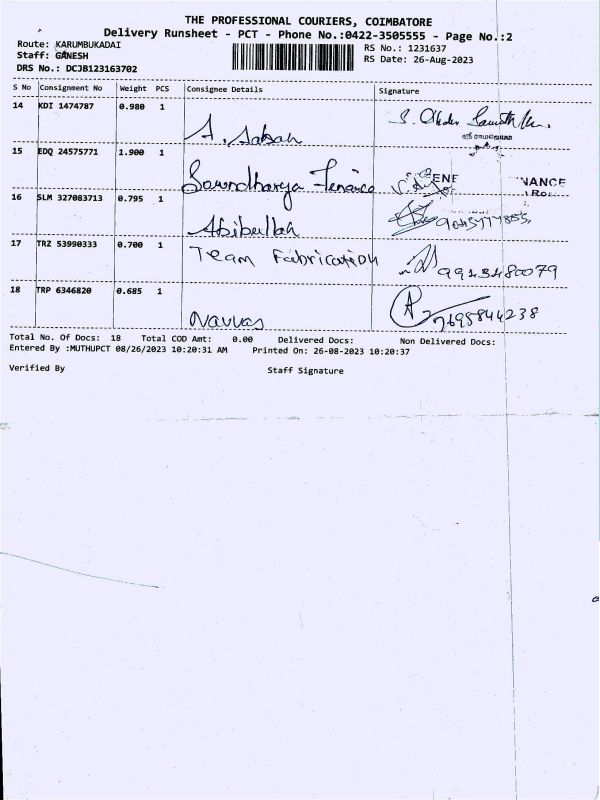 THE PROFESSIONAL COURIERS, COIMBATORE
Delivery Runsheet - PCT - Phone No.:0422-3505555 - Page No.:2
Route: KARUMBUKADAI
RS No.: 1231637
Staff: GANESH
RS Date: 26-Aug-2023
DRS No.: DCJB123163702
S No Consignment No Weight PCS Consignee Details Signature
14 KDI 1474787 0.980 1
15 EDQ 24575771 1.900 1
16 SLM 327083713 0.795 1
Abibullah
17 TRZ 53990333 0.700 1 Team Fabrication
9943480079
18 TRP 6346820 0.685 1
Navvas 7695844238
Total No. Of Docs: 18 Total COD Amt: 0.00 Delivered Docs: Non Delivered Docs:
Entered By :MUTHUPCT 08/26/2023 10:20:31 AM Printed On: 26-08-2023 10:20:37
Verified By Staff Signature